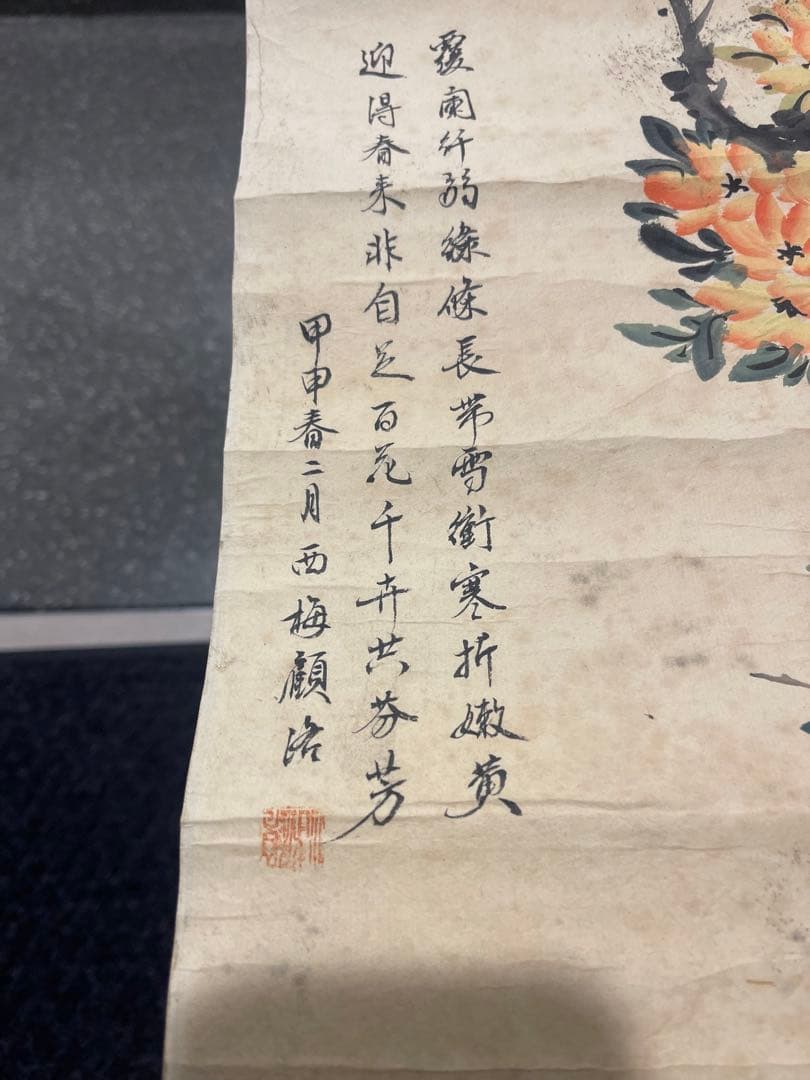 覆闌纤弱綠條長帶雪衝寒折嫩黄
迎得春来非自足百花千卉共芬芳
甲申春二月西梅顧洛